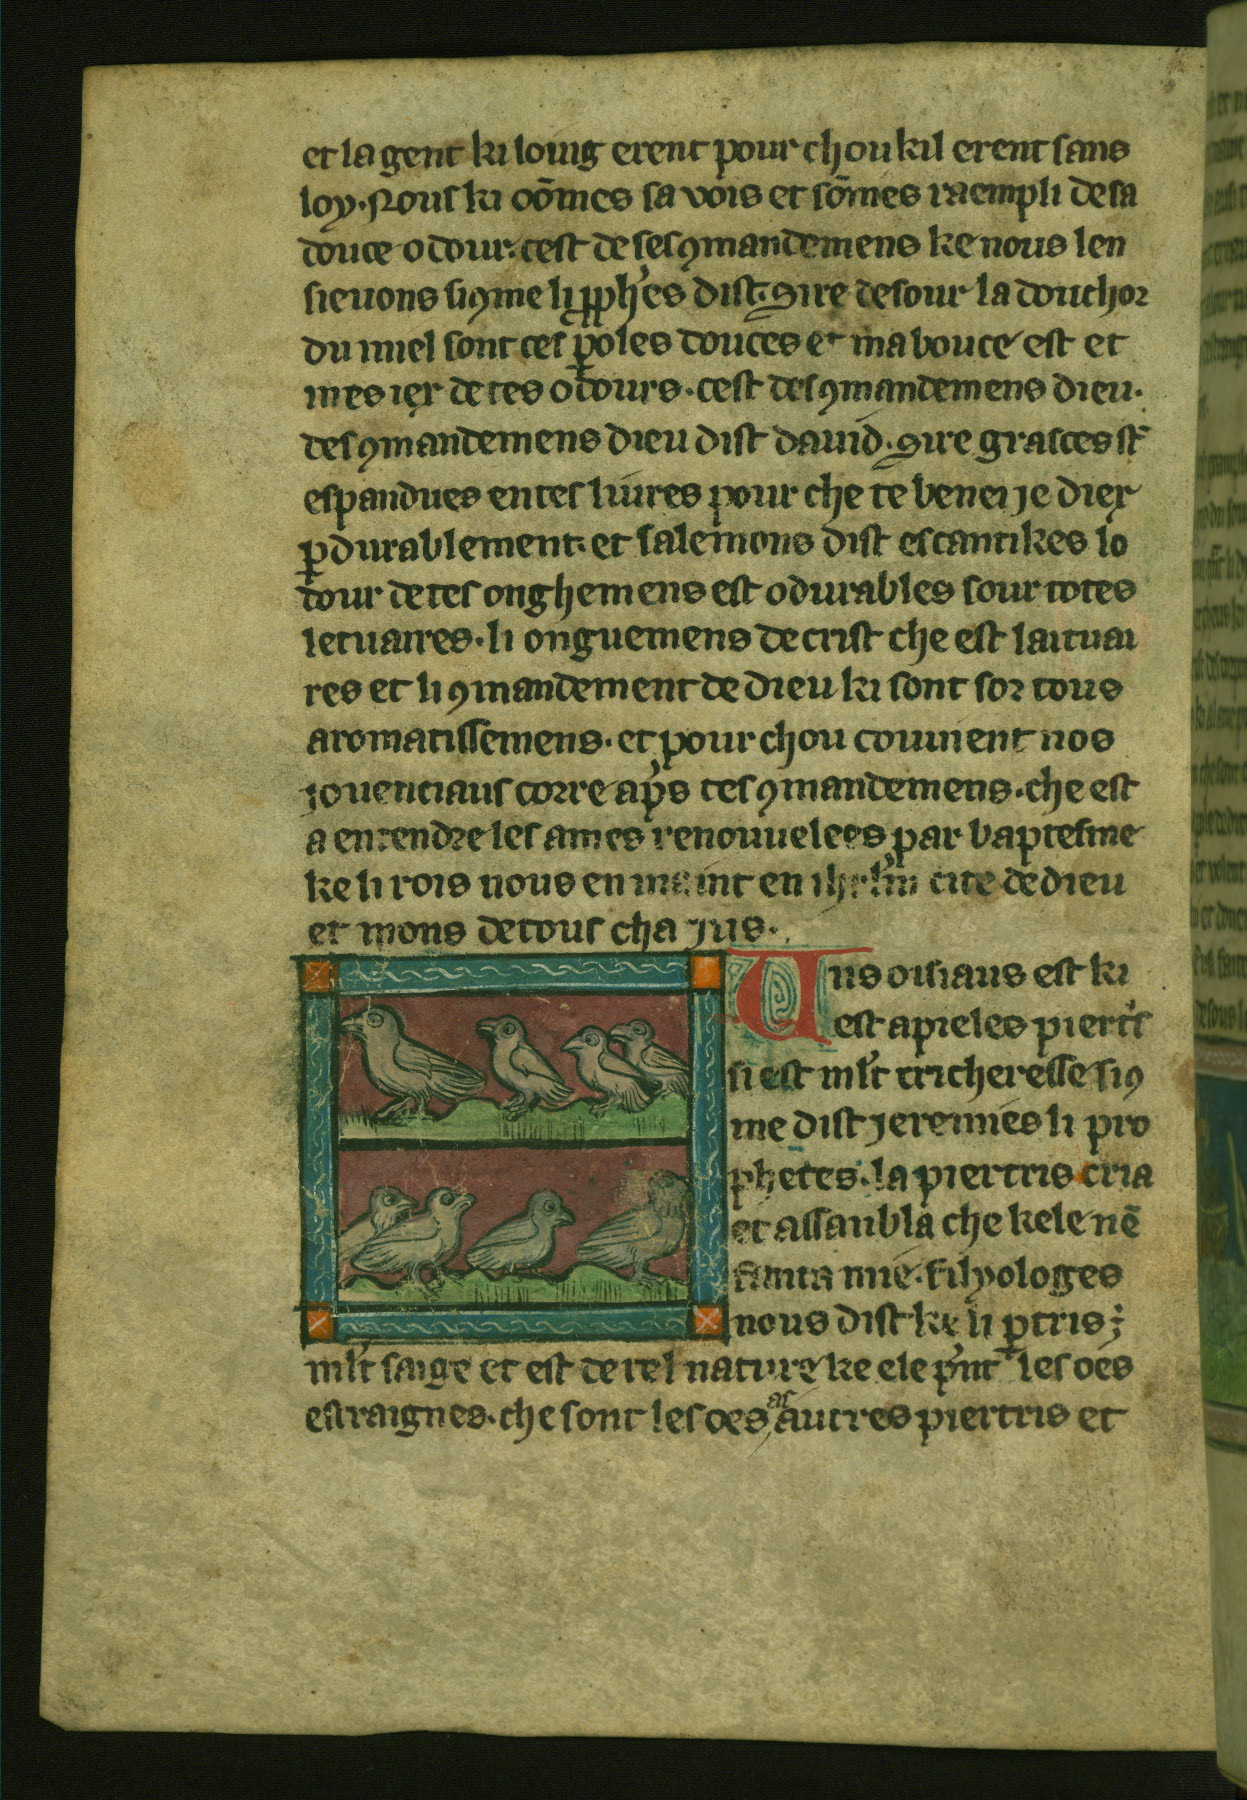 et la gent ki loing erent pour chou kil erent sans
loy. Nous ki oōmes sa vois et sōmes raempli de sa
douce odour. cest de ses ꝯmandemens ke nous len
sieuons si ꝯme li ꝓph'es dist. Sire desour la douchoꝛ
du miel sont tes ꝑoles douces et ma bouce est et
mes ier de tes odours. cest des ꝯmandemens dieu.
des ꝯmandemens dieu dist dauid. Sire grasces st̄
espandues en tes liures pour che te benei je diex
ꝑdurablement. et salemons dist es cantikes lo
dour de tes onghemens est odurables sour totes
letuaires. li onguemens de crist che est laituai
res et li ꝯmandement de dieu ki sont soꝛ tous
aromatissemens. et pour chou couuient nos
jouenciaus coꝛre ap's tes ꝯmandemens. che est
a entendꝛe les ames renouuelees par baptesme
ke li rois nous en maint en ihrl'm cite de dieu
et mons de tous cha jus.
Uns oisiaus est ki
est apieles piert's
si est ml't tricheresse si ꝯ
me dist jeremies li pro
phetes. la piertris cria
et assaubla che kele nē
fanta mie. Filyologes
nous dist ke li ꝑtris ē
ml't saige et est de tel nature ke ele p'nt les oes
estraignes. che sont les oes as autres piertris et